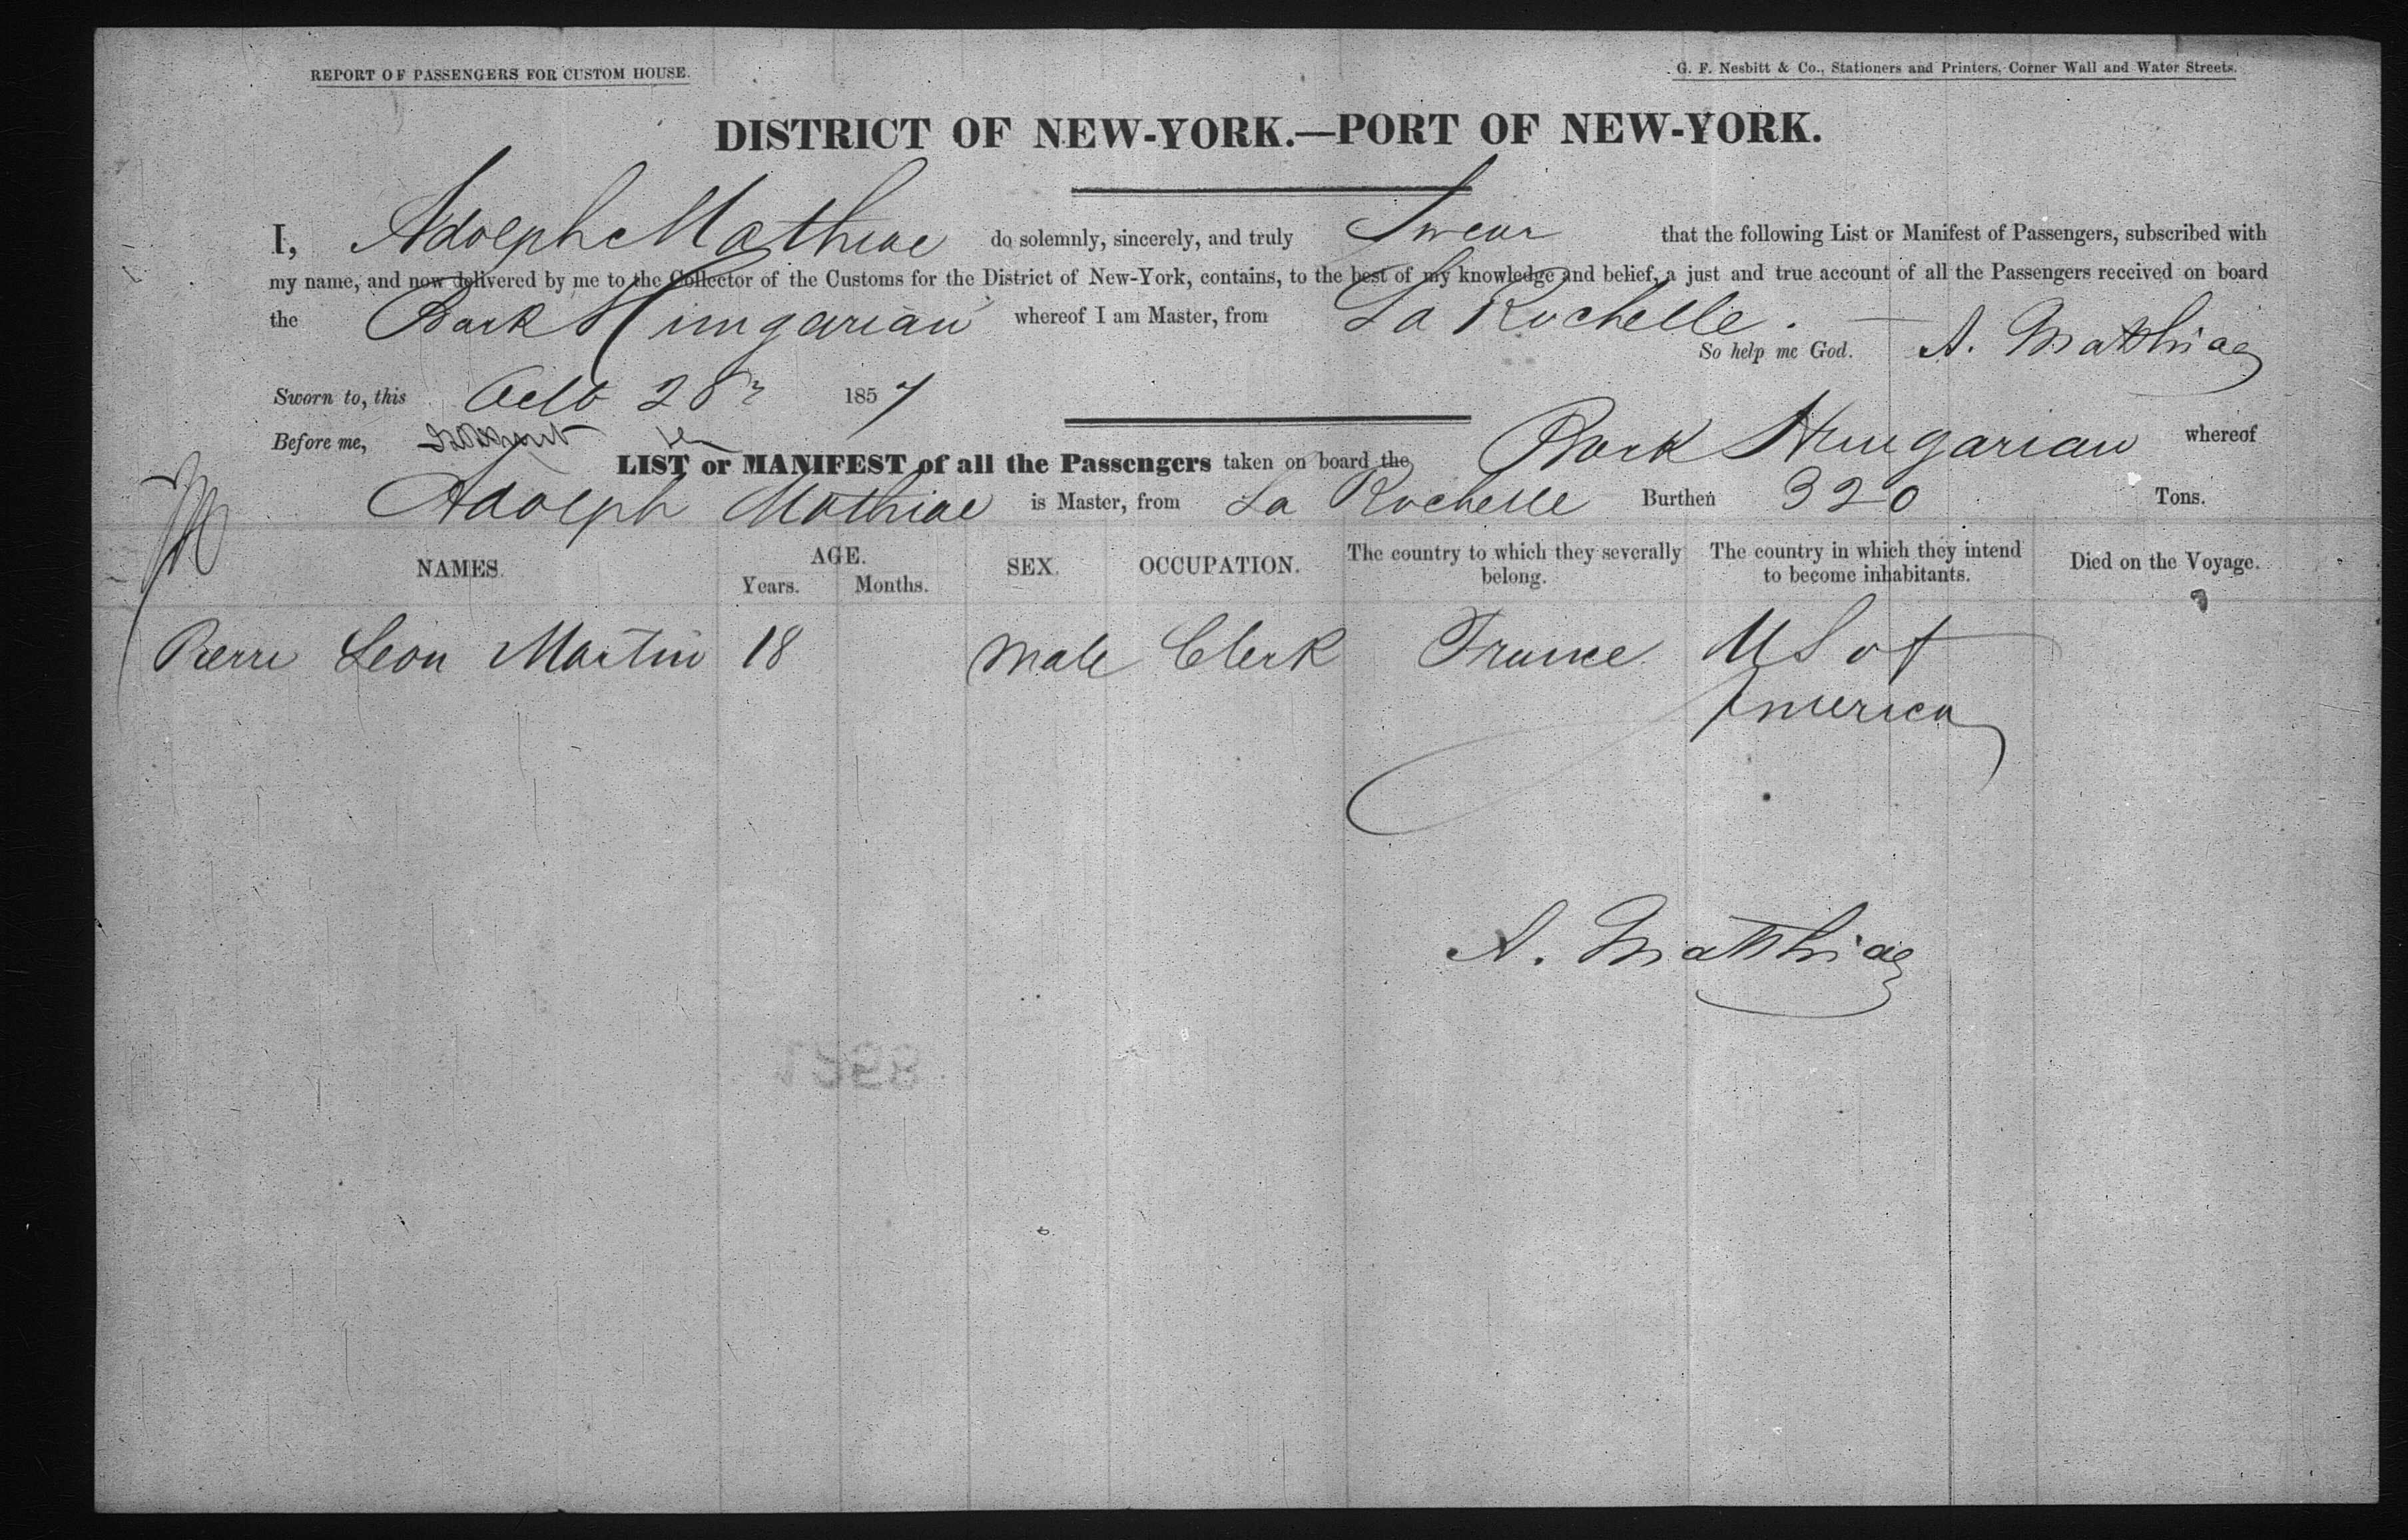 REPORT OF PASSENGERS FOR CUSTOM HOUSE.
G. F. Nesbitt & Co., Stationers and Printers, Corner Wall and Water Streets.
DISTRICT OF NEW-YORK.—PORT OF NEW-YORK.
I, Adolph Mathiae do solemnly, sincerely, and truly Swear that the following List or Manifest of Passengers, subscribed with
my name, and now delivered by me to the Collector of the Customs for the District of New-York, contains, to the best of my knowledge and belief, a just and true account of all the Passengers received on board
the Bark Hungarian whereof I am Master, from La Rochelle.
So help me God. A. Matthiae
Sworn to, this Octb 28 1857
Before me,
LIST or MANIFEST of all the Passengers taken on board the Bark Hungarian whereof
Adolph Mathiae is Master, from La Rochelle Burthen 320 Tons.
NAMES. AGE. SEX. OCCUPATION. The country to which they severally belong. The country in which they intend to become inhabitants. Died on the Voyage.
Years. Months.
Pierre Leon Martin 18 male Clerk France U S of
America
A. Matthiae